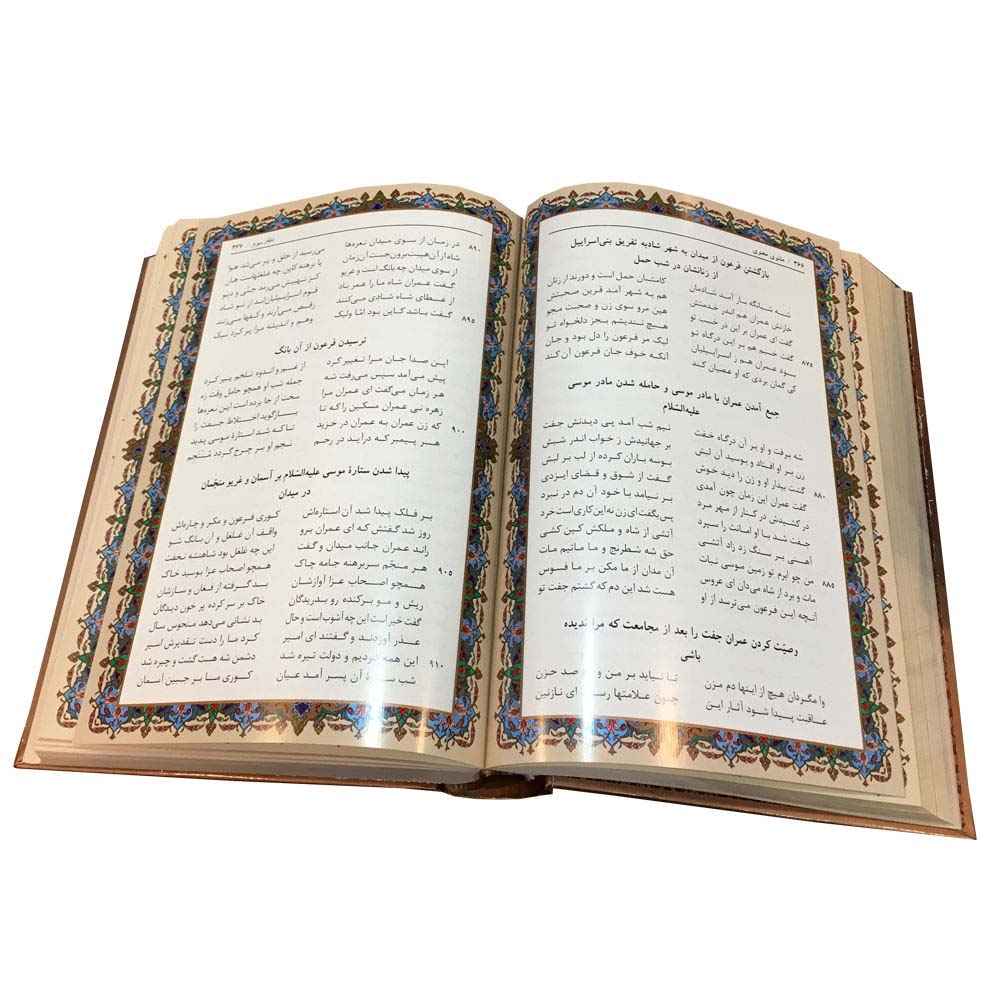 ۳۶۶ / مثنوی معنوی
بازگشتن فرعون از میدان به شهر شادبه تفریق بنی‌اسراییل
از زنانشان در شب حمل
شبانگه باز آمد شادمان کامشبان حمل است و دورند از زنان
خازنش عمران هم اندر خدمتش هم به شهر آمد قرین صحبتش
گفت ای عمران بر این در خسب تو هین مرو سوی زن و صحبت مجو
گفت خسبم هم بر این درگاه تو هیچ نندیشم بجز دلخواه تو
۸۷۵ بود عمران هم ز اسراییلیان لیک مر فرعون را دل بود و جان
کی گمان بردی که او عصیان کند آنکه خوف جان فرعون آن کند
جمع آمدن عمران با مادر موسی و حامله شدن مادر موسی
علیه‌السّلام
شه برفت و او بر آن درگاه خفت نیم شب آمد پی دیدنش جفت
زن بر او افتاد و بوسید آن لبش بر جهانیدش ز خواب اندر شبش
گشت بیدار او و زن را دید خوش بوسه باران کرده از لب بر لبش
۸۸۰ گفت عمران این زمان چون آمدی گفت از شوق و قضای ایزدی
در کشیدش در کنار از مهر مرد بر نیامد با خود آن دم در نبرد
جفت شد با او امانت را سپرد پس بگفت ای زن نه این کاری است خرد
آهنی بر سنگ زد زاد آتشی آتشی از شاه و ملکش کین کشی
من چو ابرم تو زمین موسی نبات حق شه شطرنج و ما ماتیم مات
۸۸۵ مات و برد از شاه می‌دان ای عروس آن مدان از ما مکن بر ما فسوس
آنچه این فرعون می‌ترسد از او هست شد این دم که گشتم جفت تو
وصیّت کردن عمران جفت را بعد از مجامعت که مرا ندیده
باشی
وا مگردان هیچ از اینها دم مزن تا نیاید بر من و صد حزن
عاقبت پیدا شود آثار این چون علامتها رسد ای نازنین
دفتر سوم / ۳۶۷
۸۹۰ در زمان از سوی میدان نعره‌ها می‌رسید از خلق و پر می‌شد هوا
شاه از آن هیبت برون جست آن زمان پا برهنه کاین چه غلغلهاست هان
از سوی میدان چه بانگ است و غریو کز نهیبش می‌رمد جنّی و دیو
گفت عمران شاه ما را عمر باد قوم اسراییلیانند از تو شاد
از عطای شاه شادی می‌کنند رقص می‌آرند و کفها می‌زنند
۸۹۵ گفت باشد کاین بود امّا ولیک وهم و اندیشه مرا پر کرد نیک
ترسیدن فرعون از آن بانگ
این صدا جان مرا تغییر کرد از غم و اندوه تلخم پیر کرد
پیش می‌آمد سپس می‌رفت شه جمله شب او همچو حامل وقت زه
هر زمان می‌گفت ای عمران مرا سخت از جا برده است این نعره‌ها
زهره نی عمران مسکین را که تا بازگوید اختلاط جفت را
۹۰۰ که زن عمران به عمران در خزید تا که شد استارهٔ موسی پدید
هر پیمبر که درآید در رحم نجم او بر چرخ گردد منتجم
پیدا شدن ستارهٔ موسی علیه‌السّلام بر آسمان و غریو منجّمان
در میدان
بر فلک پیدا شد آن استاره‌اش کوری فرعون و مکر و چاره‌اش
روز شد گفتش که ای عمران برو واقف آن غلغل و آن بانگ شو
راند عمران جانب میدان و گفت این چه غلغل بود شاهنشه نخفت
۹۰۵ هر منجّم سربرهنه جامه چاک همچو اصحاب عزا بوسید خاک
همچو اصحاب عزا آوازشان بد گرفته از فغان و سازشان
ریش و مو برکنده رو بدریدگان خاک بر سر کرده پر خون دیدگان
گفت خیر است این چه آشوب است و حال بد نشانی می‌دهد منحوس سال
عذر آوردند و گفتند ای امیر کرد ما را دست تقدیرش اسیر
۹۱۰ این همه کردیم و دولت تیره شد دشمن شه هست گشت و چیره شد
شب ستاره آن پسر آمد عیان کوری ما بر جبین آسمان